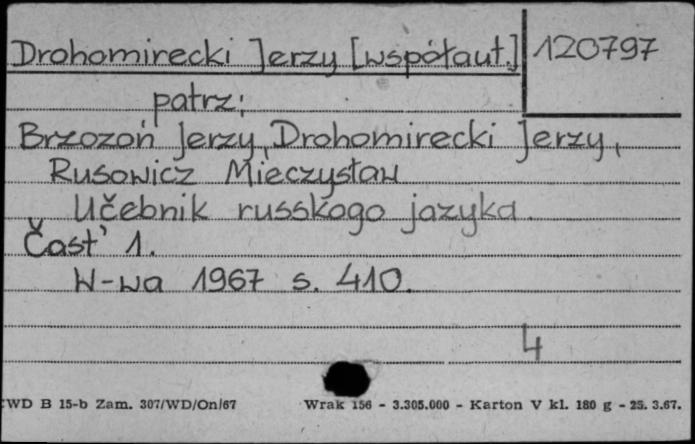 Drohomirecki Jerzy [współaut.] 120797
patrz:
Brzozoń Jerzy, Drohomirecki Jerzy,
Rusowicz Mieczysław
Učebnik russkogo jazyka.
Čast' 1.
W-wa 1967 s. 410.
4
WD B 15-b Zam. 307/WD/On/67 Wrak 156 - 3.305.000 - Karton V kl. 180 g - 25. 3.67.